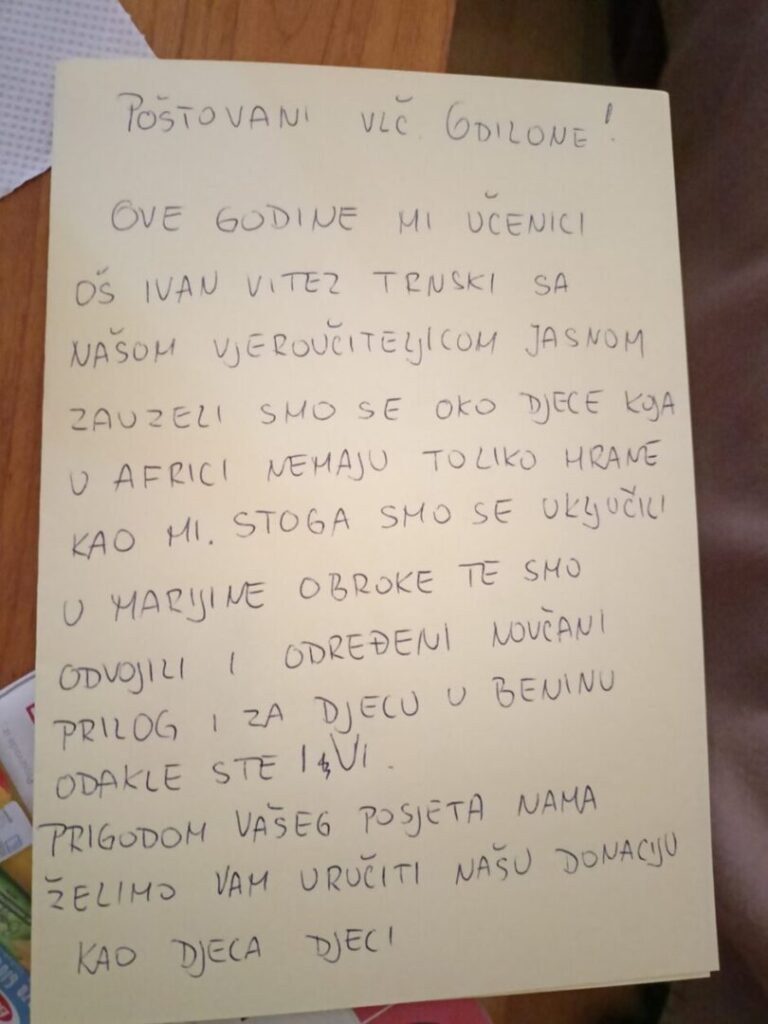 POŠTOVANI VLČ. ODILONE!
OVE GODINE MI UČENICI
OŠ IVAN VITEZ TRNSKI SA
NAŠOM VJEROUČITELJICOM JASNOM
ZAUZELI SMO SE OKO DJECE KOJA
U AFRICI NEMAJU TOLIKO HRANE
KAO MI. STOGA SMO SE UKLJUČILI
U MARIJINE OBROKE TE SMO
ODVOJILI I ODREĐENI NOVČANI
PRILOG I ZA DJECU U BENINU
ODAKLE STE I VI.
PRIGODOM VAŠEG POSJETA NAMA
ŽELIMO VAM URUČITI NAŠU DONACIJU
KAO DJECA DJECI